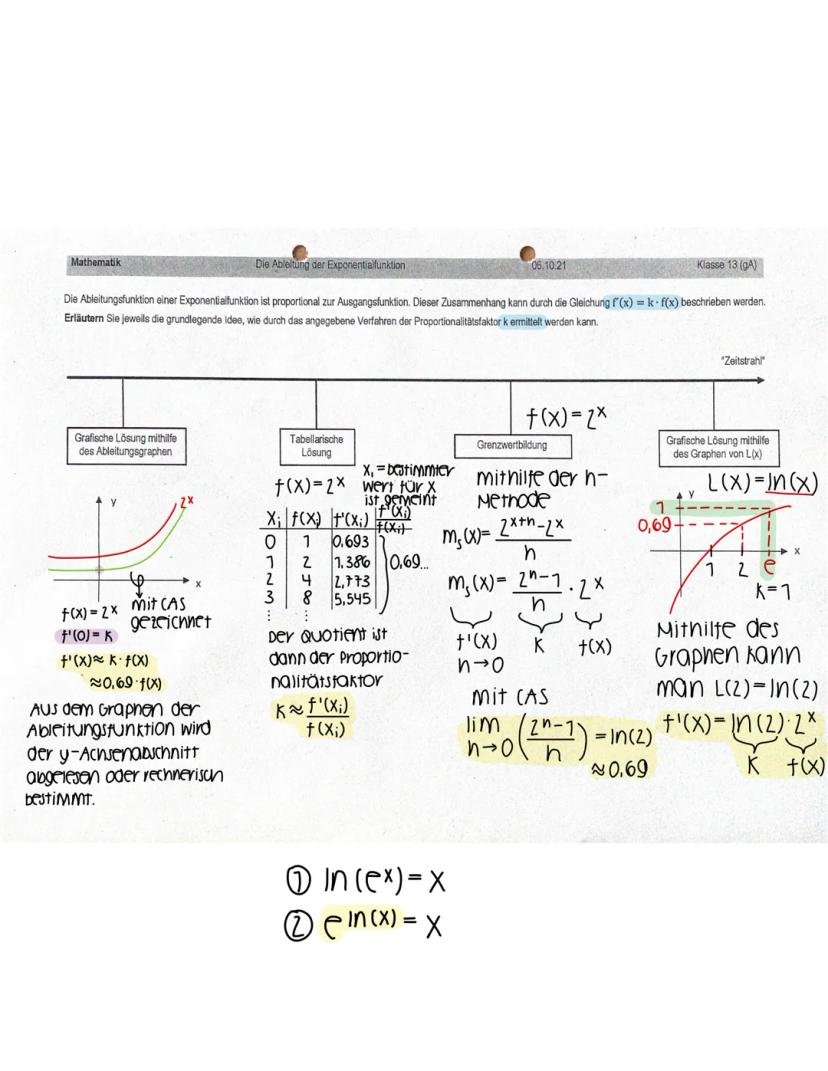 Mathematik Die Ableitung der Exponentialfunktion 05.10.21 Klasse 13 (gA)
Die Ableitungsfunktion einer Exponentialfunktion ist proportional zur Ausgangsfunktion. Dieser Zusammenhang kann durch die Gleichung f'(x) = k · f(x) beschrieben werden.
Erläutern Sie jeweils die grundlegende Idee, wie durch das angegebene Verfahren der Proportionalitätsfaktor k ermittelt werden kann.
"Zeitstrahl"
Grafische Lösung mithilfe
des Ableitungsgraphen
y
2^x
φ
x
f(x) = 2^x mit CAS
gezeichnet
f'(0) = K
f'(x) ≈ K · f(x)
≈ 0,69 · f(x)
Aus dem Graphen der
Ableitungsfunktion wird
der y-Achsenabschnitt
abgelesen oder rechnerisch
bestimmt.
Tabellarische
Lösung
f(x) = 2^x
x_i = bestimmter
Wert für x
ist gemeint
x_i f(x_i) f'(x_i) f'(x_i)/f(x_i)
0 1 0,693
1 2 1,386 0,69...
2 4 2,773
3 8 5,545
⋮ ⋮
Der Quotient ist
dann der Proportio-
nalitätsfaktor
K ≈ f'(x_i)/f(x_i)
f(x) = 2^x
Grenzwertbildung
mithilfe der h-
Methode
m_s(x) = (2^(x+h) - 2^x)/h
m_s(x) = (2^h - 1)/h · 2^x
f'(x) K f(x)
h→0
mit CAS
lim h→0 ((2^h - 1)/h) = ln(2)
≈ 0,69
Grafische Lösung mithilfe
des Graphen von L(x)
L(x) = ln(x)
y
1
0,69
x
1 2 e
K = 1
Mithilfe des
Graphen kann
man L(2) = ln(2)
f'(x) = ln(2) · 2^x
K f(x)
① ln(e^x) = x
② e^ln(x) = x